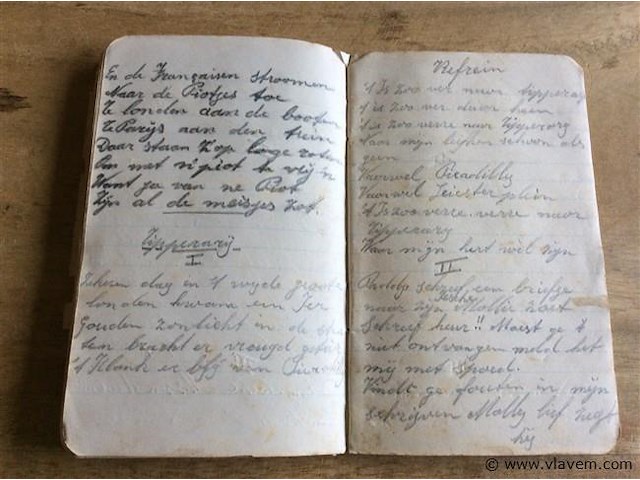 En de Françaisen stroomen
Naar de Piotjes toe
Te londen aan de booten
Te Parijs aan den trein
Daar staan z'op lange roten
Om met n' piot te zijn
Want ja van ne Piot
Zijn al de meisjes zot.
Tipperarij
I
Zekeren dag en 't wijde groote
londen kwam een Ier
Gouden zonlicht in de
bracht er vreugd
't Klonk er bij van
Refrein
't Is zoo ver naar tipperary
't is zoo ver
't is zoo verre naar Tipperary
mijn schoon als
geen
Vaarwel Picadilly
Vaarwel Leicester plein
't Is zoo verre verre naar
Tipperary
Waar mijn hert wel zijn
II
Paddy schreef een briefje
naar zijn Iersche Mollie zoet
Schreef heur!! Moist ge 't
niet ontvangen meld het
mij met spoed.
Vindt ge fouten in mijn
schrijven Molly lief zegt
hij
© www.vlavem.com